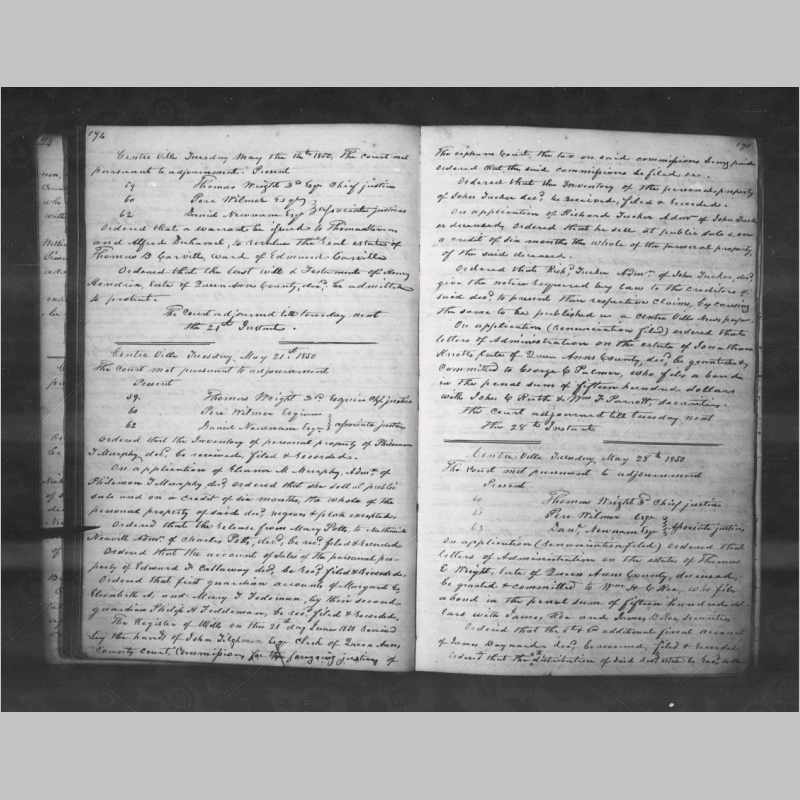 174
Centre Ville Tuesday May the 14th 1850, The Court met
pursuant to adjournment. Present
59 Thomas Wright 3d Esqr Chief justice
60 Pere Wilmer Esqr
62 Daniel Newnam Esqr } Associate justices
Ordered that a warrant be issued to Thomas
and Alfred to the real estate of
Thomas B Carville, ward of Edmund Carville
Ordered that the last will & Testament of Henry
late of Queen Anns County, decd. be admitted
to probate.
The Court adjourned till tuesday next
the 21st Instant.
Centre Ville Tuesday, May 21st 1850
The Court met pursuant to adjournment
Present
59. Thomas Wright 3d Esquire Chf justice
60 Pere Wilmer Esquire
62 Daniel Newnam Esqr } associate justices
Ordered that the Inventory of personal property of Philemon
T Murphy, decd. be received, filed & recorded.
On application of M. Murphy, Admx. of
Philemon T Murphy decd. ordered that she sell at public
sale and on a credit of six months, the whole of the
personal property of said decd. negroes & excepted.
Ordered that the release from Mary Potts, to
Newell Admr. of Charles Potts, decd. be recd. filed & recorded
Ordered that the account of sales of the personal pro-
perty of Edward F. Callaway decd. be recd. filed & recorded.
Ordered that first guardian account of Margaret E,
Elizabeth A, and Mary T. Teddeman, by their second
guardian Philip H Teddeman, be recd. filed & recorded.
The Register of Wills on this 21st day 1850 received
by the hands of John Tilghman Esqr Clerk of Queen Anns
County Court, Commissions for the foregoing justices of
The orphans Court, the tax on said commissions being paid
ordered that the said commissions be filed &c.
Ordered that the Inventory of the personal property
of John Tucker decd. be received, filed & recorded.
On application of Richard Tucker Admr. of John Tucker
deceased, ordered that he sell at public sale & on
a credit of six months the whole of the personal property,
of the said deceased.
Ordered that Richd. Tucker Admr. of John Tucker, decd.
give the notice required by law to the creditors of
said decd. to present their respective claims, by causing
the same to be published in a Centre Ville Newspaper.
On application (renunciation filed) ordered that
letters of Administration on the estate of Jonathan
late of Queen Anns County, decd. be granted &
committed to George Palmer, who files a bond
in the penal sum of fifteen hundred dollars
with John C Ruth & Wm. F Parrott, securities.
The Court adjourned till tuesday next
the 28th Instant.
Centre Ville Tuesday, May 28th 1850
The Court met pursuant to adjournment
Present
Thomas Wright 3d Chief justice
Pere Wilmer Esqr
Danl. Newnam Esqr } Associate justices
On application (renunciation filed) ordered that
letters of Administration on the estate of Thomas
E. Wright, late of Queen Anns County, deceased,
be granted & committed to Wm. H. C. who files
a bond in the penal sum of fifteen hundred dol
lars with James and James securities
Ordered that the 5th & 6th additional final account
of James Baynard decd. be received, filed & recorded
Ordered that the distribution of said decd. estate be recd.